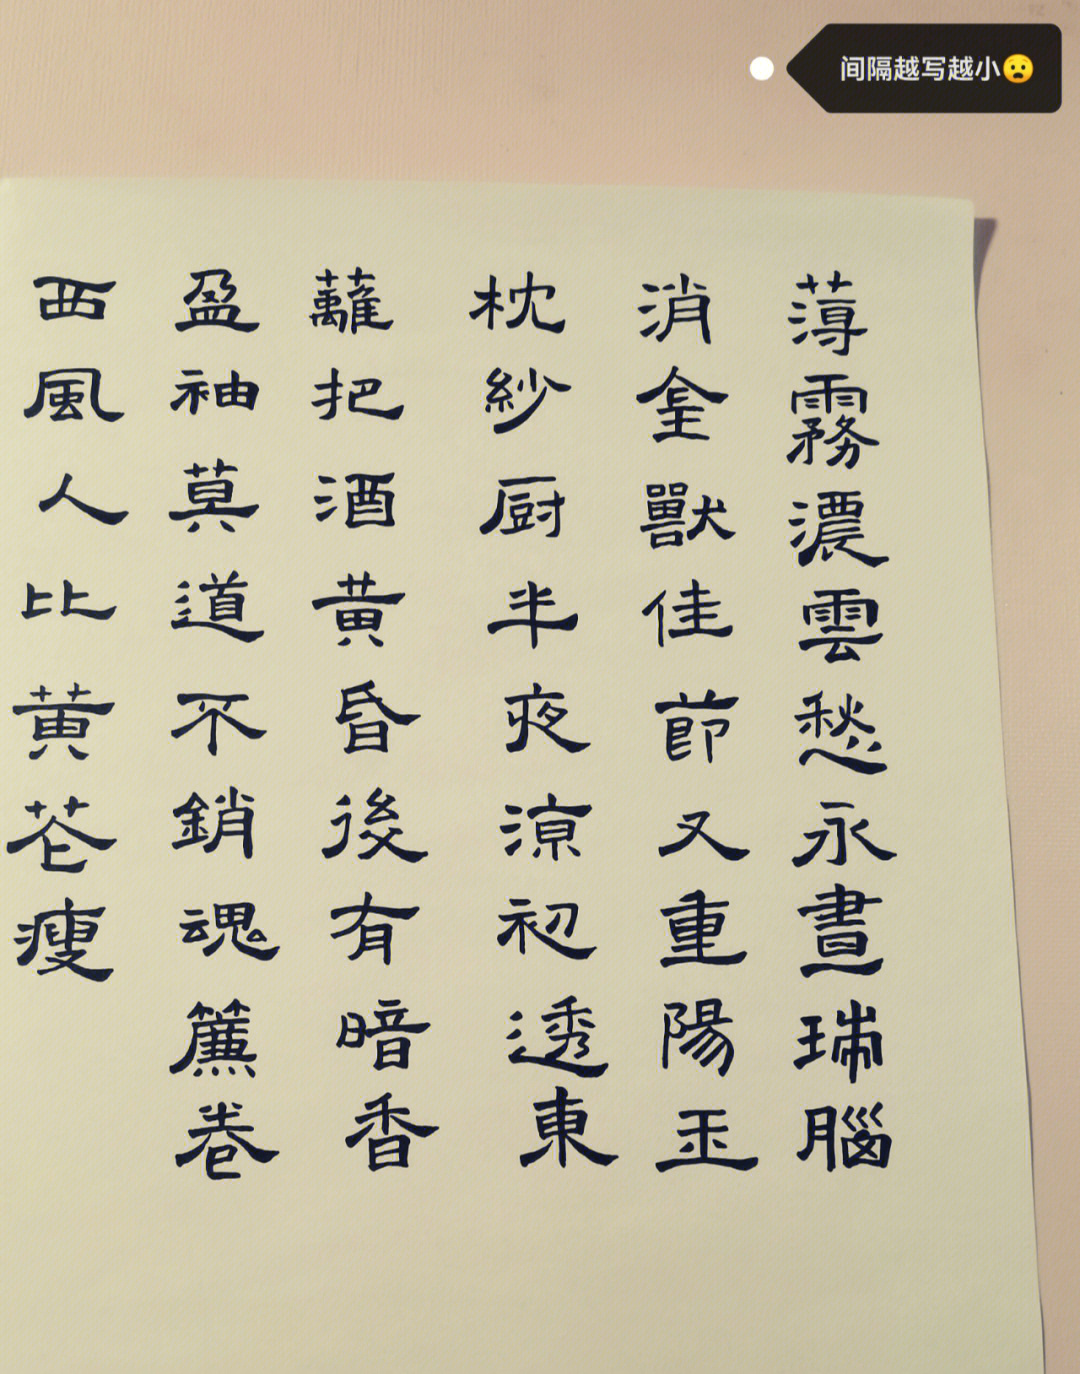 间隔越写越小😦
薄霧濃雲愁永晝瑞腦
消金獸佳節又重陽玉
枕紗厨半夜涼初透東
蘺把酒黄昏後有暗香
盈袖莫道不銷魂簾卷
西風人比黄花瘦